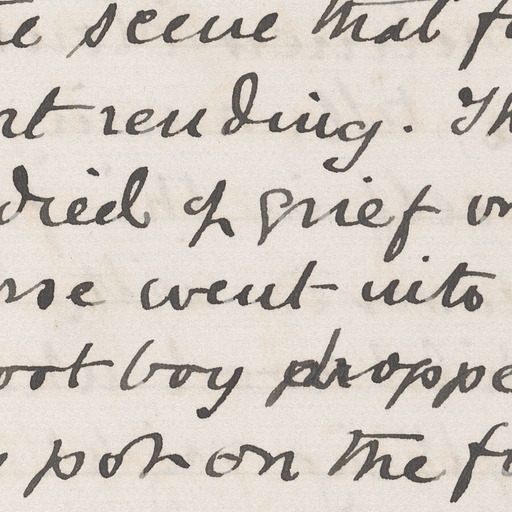 he scene that fo
rt rending. Th
died of grief on
rse went into
oot boy droppe
pot on the f